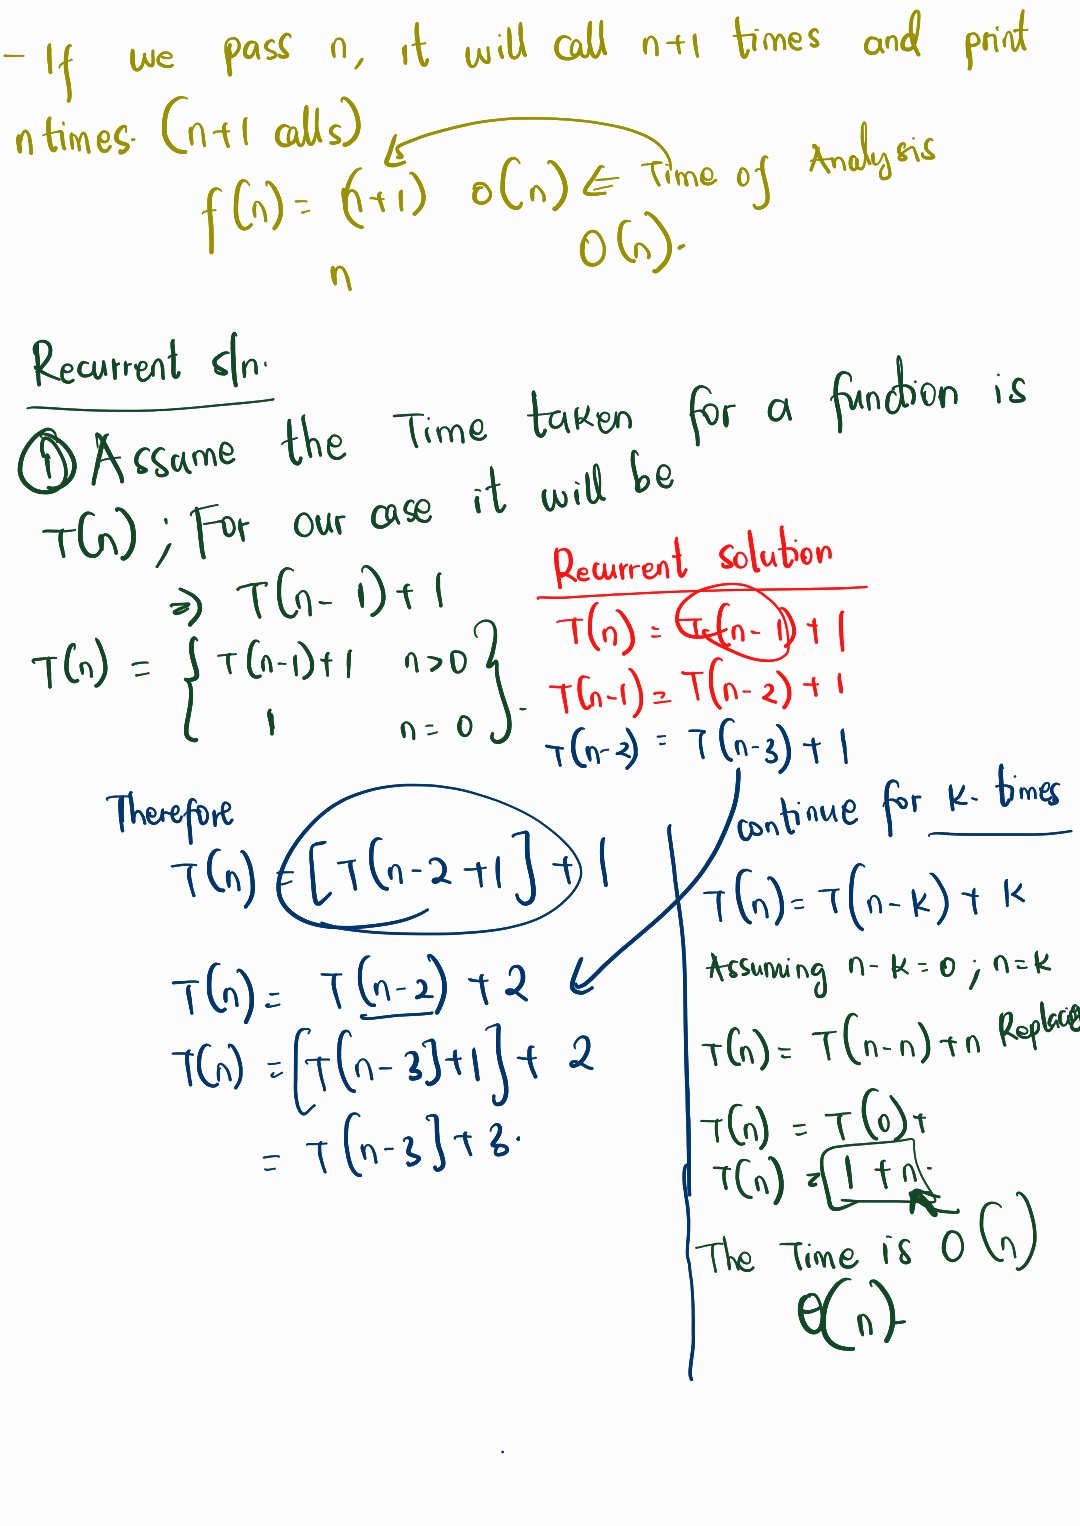 - If we pass n, it will call n+1 times and print
n times. (n+1 calls)
f(n) = (n+1) O(n) ⇐ Time of Analysis
n O(n).
Recurrent s/n.
① Assame the Time taken for a function is
T(n) ; For our case it will be
⇒ T(n-1)+1
T(n) = { T(n-1)+1 n>0
1 n=0 }.
Recurrent solution
T(n) = T(n-1) + 1
T(n-1) = T(n-2) + 1
T(n-2) = T(n-3) + 1
Therefore
T(n) = [T(n-2+1] + 1
T(n) = T(n-2) + 2
T(n) = [T(n-3]+1] + 2
= T(n-3] + 3.
continue for k. times
T(n) = T(n-k) + k
Assuming n-k=0 ; n=k
T(n) = T(n-n) +n Replace
T(n) = T(0) +
T(n) = 1 + n.
The Time is O(n)
θ(n)